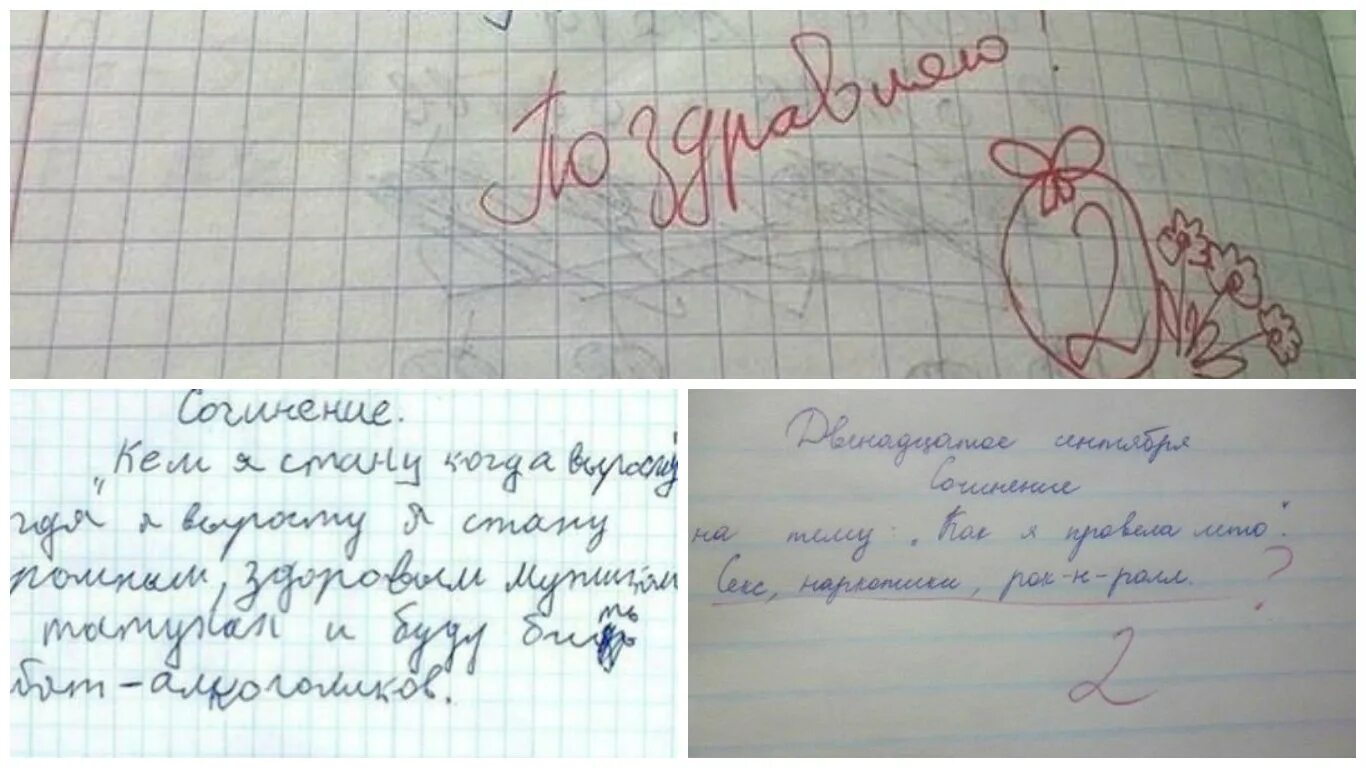 Поздравляю!
2
Сочинение.
"Кем я стану когда вырасту"
я выросту я стану
здоровым мужиком
и буду бить
-алкоголиков.
Двенадцатое сентября
Сочинение
на тему: "Как я провела лето".
Секс, наркотики, рок-н-ролл. ?
2